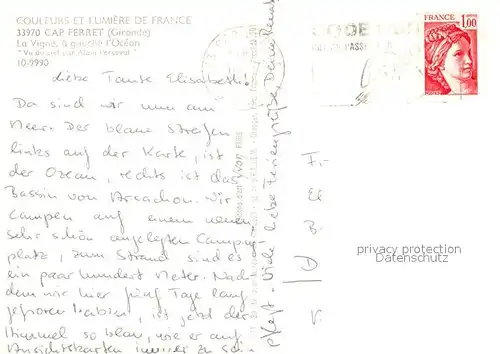 COULEURS ET LUMIÈRE DE FRANCE
33970 CAP FERRET (Gironde)
La Vigne, à gauche l'Océan
"Vu du ciel par Alain Perceval"
10-9990
Liebe Tante Elisabeth!
Da sind wir nun am
Meer. Der blaue Streifen
links auf der Karte, ist
der Ozean, rechts ist das
Bassin von Arcachon. Wir
campen auf einem neuen
sehr schön angelegten Camping-
platz, zum Strand sind es
ein paar hundert Meter. Nach
dem wir hier fünf Tage lang
gefroren haben, ist jetzt der
Himmel so blau, wie er auf
Ansichtskarten immer zu sein
pflegt. Viele liebe Feriengrüße,
yvon
FRANCE
1,00
CODE
privacy protection
Datenschutz
D